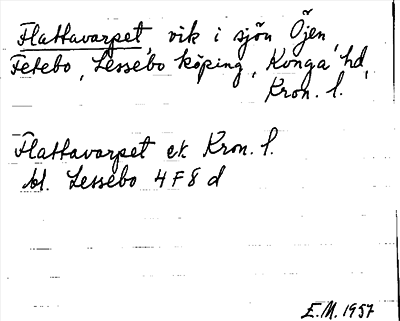 Flattavarpet, vik i sjön Öjen,
Fetebo, Lessebo köping, Konga hd,
Kron. l.
Flattavarpet ek Kron. l.
bl. Lessebo 4 F 8 d
E.M. 1957